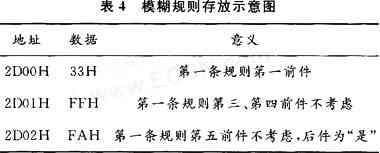 表 4 模糊规则存放示意图
地址 数据 意义
2D00H 33H 第一条规则第一前件
2D01H FFH 第一条规则第三、第四前件不考虑
2D02H FAH 第一条规则第五前件不考虑,后件为“是”